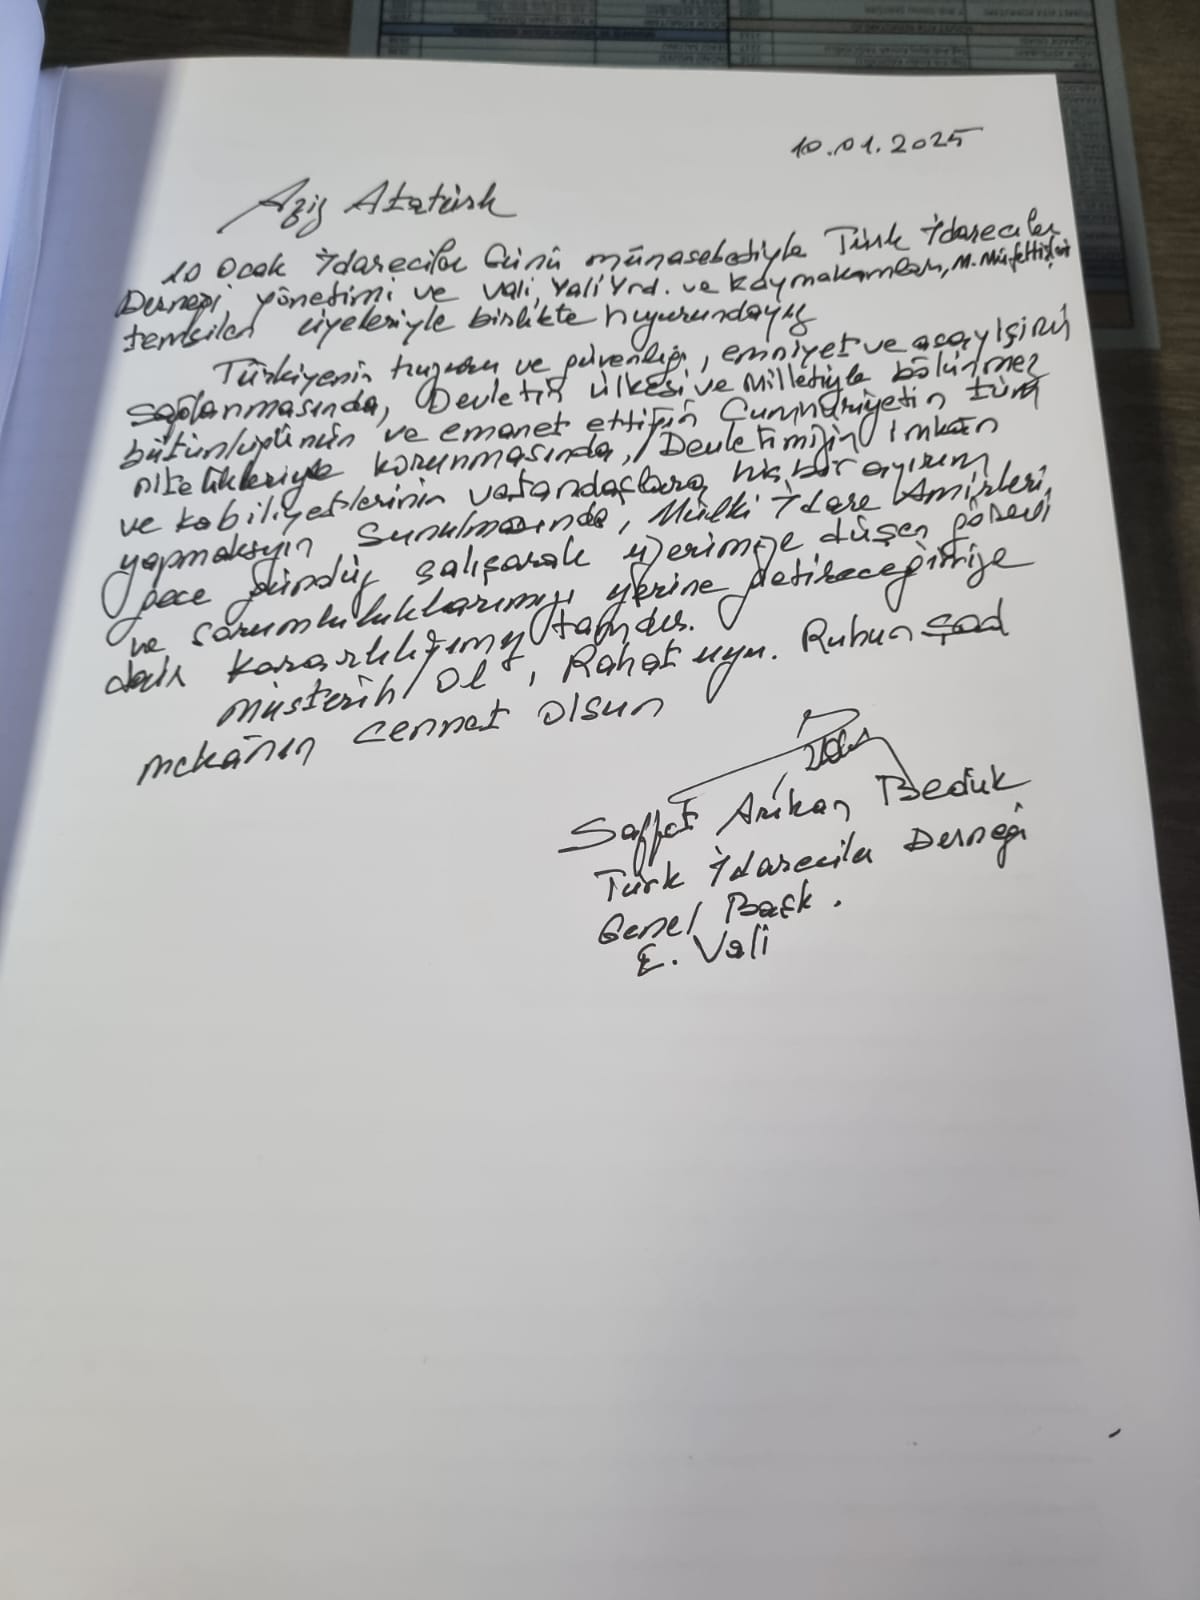 10.01.2025
Aziz Atatürk
10 Ocak İdareciler Günü münasebetiyle Türk İdareciler
Derneği yönetimi ve Vali, Vali Yrd. ve Kaymakamlar, M. Müfettişleri
temsilen üyeleriyle birlikte huzurundayız
Türkiyenin huzuru ve güvenliği, emniyet ve asayişinin
sağlanmasında, Devletin ülkesi ve Milletiyle bölünmez
bütünlüğünün ve emanet ettiğin Cumhuriyetin tüm
nitelikleriyle korunmasında, Devletimizin imkân
ve kabiliyetlerinin vatandaşlara hiç bir ayırım
yapmaksızın sunulmasında, Mülki İdare Amirleri,
gece gündüz çalışarak üzerimize düşen görevi
ve sorumluluklarımızı yerine getireceğimize
dair kararlılığımız tamdır.
Müsterih Ol, Rahat uyu. Ruhun şad
mekânın cennet olsun
Saffet Arıkan Bedük
Türk İdareciler Derneği
Genel Başk.
E. Vali